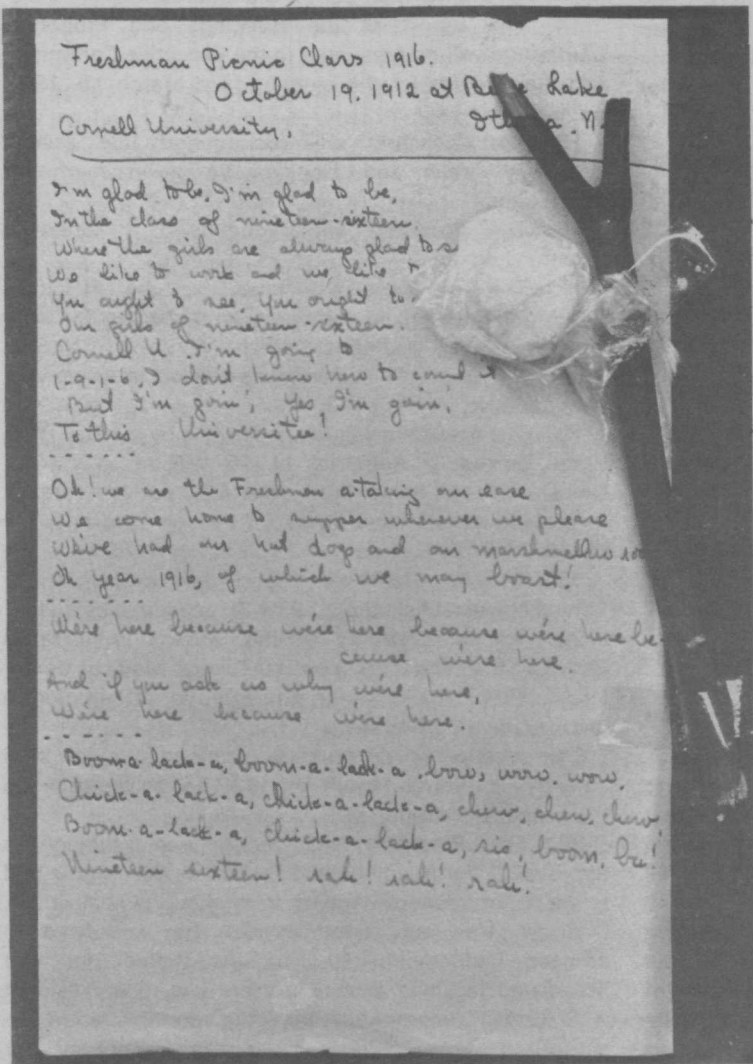 Freshman Picnic Class 1916.
October 19, 1912 at Lake
Cornell University, N.
I'm glad to be, I'm glad to be,
In the class of nineteen-sixteen,
Where the girls are always glad to
We like to work and we like
You ought to see, you ought to
Our girls of nineteen-sixteen.
Cornell U. I'm going to
1-9-1-6, I don't know how to count it
But I'm goin', yes, I'm goin',
To this Universitee!
Oh! we are the Freshmen a-taking our ease
We come home to supper whenever we please
We've had our hot dogs and our marshmellow
Oh year 1916, of which we may boast!
We're here because we're here because we're here be-
cause we're here.
And if you ask us why we're here,
We're here because we're here.
Boom-a-lack-a, boom-a-lack-a, bow, wow, wow,
Chick-a-lack-a, chick-a-lack-a, chew, chew, chew,
Boom-a-lack-a, chick-a-lack-a, sis, boom, ba!
Nineteen sixteen! rah! rah! rah!